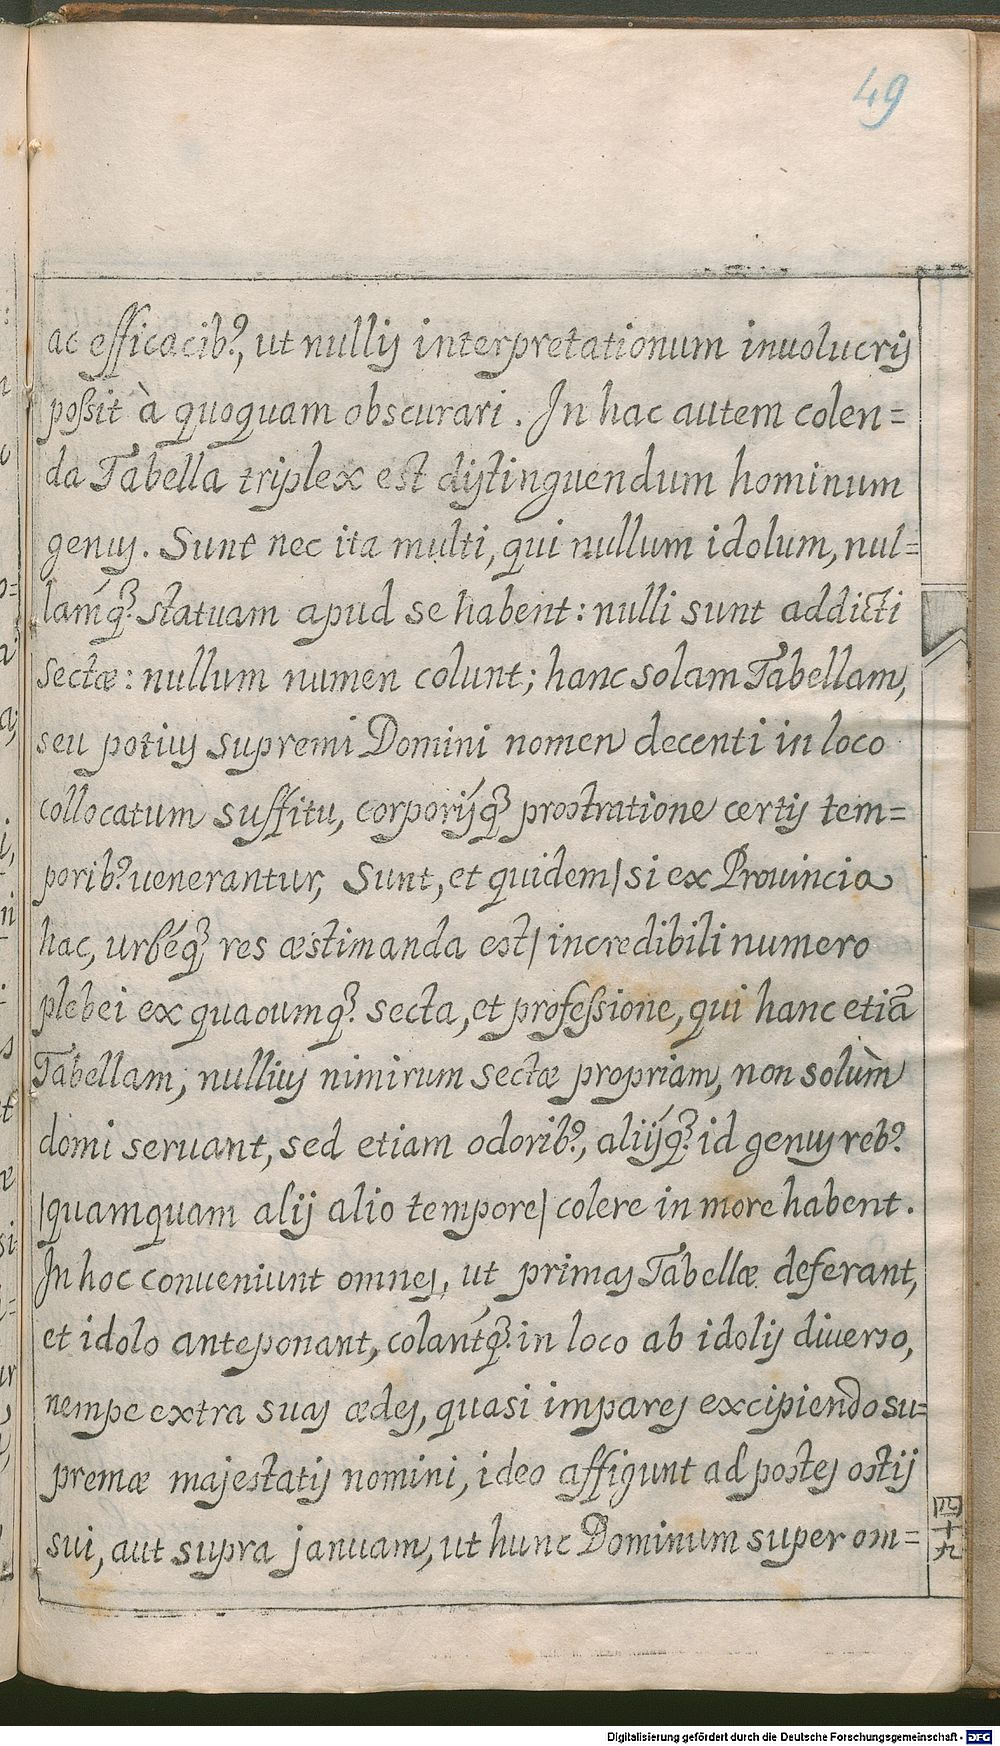 49
ac efficacib9, ut nullis interpretationum inuolucris
possit à quoquam obscurari. In hac autem colen=
da Tabella triplex est distinguendum hominum
genus. Sunt nec ita multi, qui nullum idolum, nul=
lamq3 statuam apud se habent: nulli sunt addicti
sectæ: nullum numen colunt; hanc solam Tabellam,
seu potius supremi Domini nomen decenti in loco
collocatum suffitu, corporisq3 prostratione certis tem=
porib9 uenerantur, Sunt, et quidem/si ex Prouincia
hac, urbéq3 res æstimanda est/incredibili numero
plebei ex quacumq3 secta, et professione, qui hanc etiã
Tabellam, nullius nimirum sectæ propriam, non solùm
domi seruant, sed etiam odorib9, aliisq3 id genus reb9
/quamquam alij alio tempore/colere in more habent.
In hoc conueniunt omnes, ut primas Tabellæ deferant,
et idolo anteponant, colantq3 in loco ab idolis diuerso,
nempe extra suas ædes, quasi impares excipiendo su=
premæ majestatis nomini, ideo affigunt ad postes ostij
sui, aut supra januam, ut hunc Dominum super om=
四十九
Digitalisierung gefördert durch die Deutsche Forschungsgemeinschaft - DFG